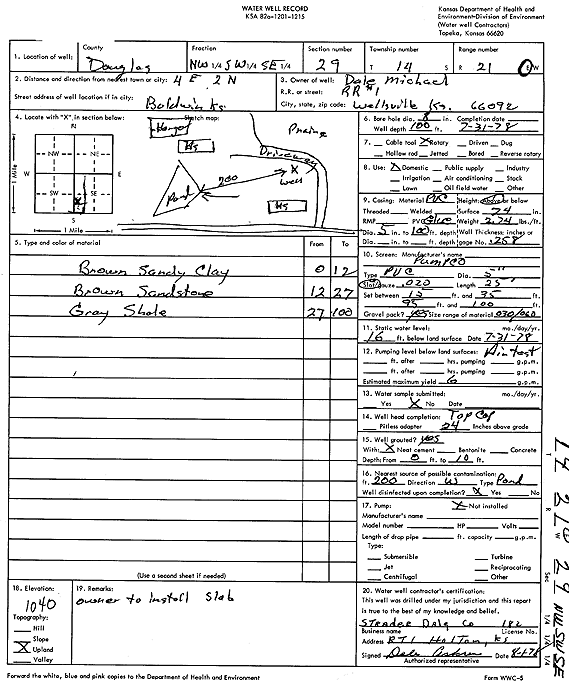 WATER WELL RECORD
KSA 82a-1201-1215
Kansas Department of Health and
Environment-Division of Environment
(Water well Contractors)
Topeka, Kansas 66620
1. Location of well:
County
Douglas
Fraction
NW 1/4 SW 1/4 SE 1/4
Section number
29
Township number
T 14 S
Range number
R 21 E/W
2. Distance and direction from nearest town or city: 4 E 2 N
Street address of well location if in city: Baldwin Ks
3. Owner of well: Dale Michael
R.R. or street: RR#1
City, state, zip code: Wellsville Ks. 66092
4. Locate with "X" in section below:
Sketch map:
N
NW NE
W E
SW SE
X
S
1 Mile
1 Mile
Hs
Prairie
Driveway
Pond
200
X
Well
Hs
6. Bore hole dia. 8 in. Completion date
Well depth 100 ft. 7-31-78
7. Cable tool X Rotary Driven Dug
Hollow rod Jetted Bored Reverse rotary
8. Use: X Domestic Public supply Industry
Irrigation Air conditioning Stock
Lawn Oil field water Other
9. Casing: Material PVC Height: Above or below
Threaded Welded Surface 24 in.
RMP PVC Glue Weight 2.74 lbs./ft.
Dia. 5 in. to 100 ft. depth Wall Thickness: inches or
Dia. in. to ft. depth gage No. .258
5. Type and color of material
From To
Brown Sandy Clay 0 12
Brown Sandstone 12 27
Gray Shale 27 100
10. Screen: Manufacturer's name
Pumpco
Type PVC Dia. 5"
Slot/gauze .020 Length 25'
Set between 15 ft. and 35 ft.
95 ft. and 100 ft.
Gravel pack? yes Size range of material .030/060
11. Static water level: mo./day/yr.
16 ft. below land surface Date 7-31-78
12. Pumping level below land surfaces: Air test
ft. after hrs. pumping g.p.m.
ft. after hrs. pumping g.p.m.
Estimated maximum yield 6 g.p.m.
13. Water sample submitted: mo./day/yr.
Yes X No Date
14. Well head completion: Top Cap
Pitless adapter 24 Inches above grade
15. Well grouted? yes
With: X Neat cement Bentonite Concrete
Depth: From 0 ft. to 10 ft.
16. Nearest source of possible contamination:
ft. 200 Direction W Type Pond
Well disinfected upon completion? X Yes No
17. Pump: X Not installed
Manufacturer's name
Model number HP Volts
Length of drop pipe ft. capacity g.p.m.
Type:
Submersible Turbine
Jet Reciprocating
Centrifugal Other
(Use a second sheet if needed)
18. Elevation:
1040
Topography:
Hill
Slope
X Upland
Valley
19. Remarks:
owner to install Slab
20. Water well contractor's certification:
This well was drilled under my jurisdiction and this report
is true to the best of my knowledge and belief.
Strader Dalg Co 182
Business name License No.
Address RT1 Holton Ks
Signed Date 8-1-78
Authorized representative
Forward the white, blue and pink copies to the Department of Health and Environment
Form WWC-5
T 14
R 21 E W
Sec. 29
NW SW SE
1/4 1/4 1/4